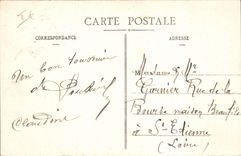 CARTE POSTALE
CORRESPONDANCE
ADRESSE
Un bon souvenir
de
Claudine
Madame
Garnier Rue de la
Bourse maison
à St Etienne
(Loire)